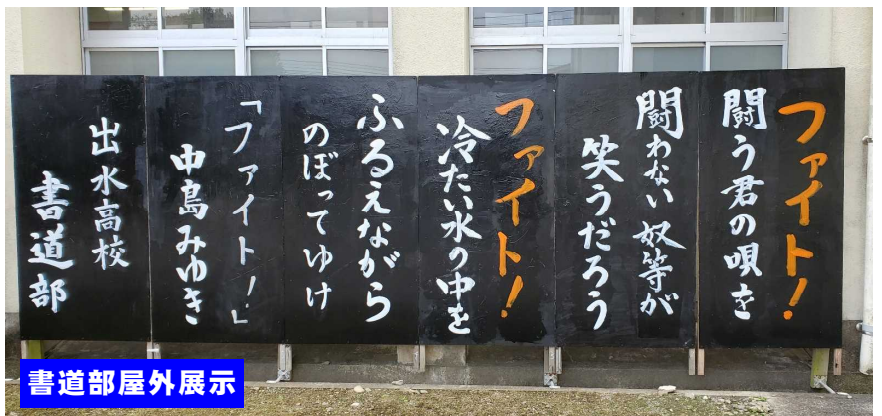 ファイト!
闘う君の唄を
闘わない奴等が
笑うだろう
ファイト!
冷たい水の中を
ふるえながら
のぼってゆけ
「ファイト!」
中島みゆき
出水高校
書道部
書道部屋外展示